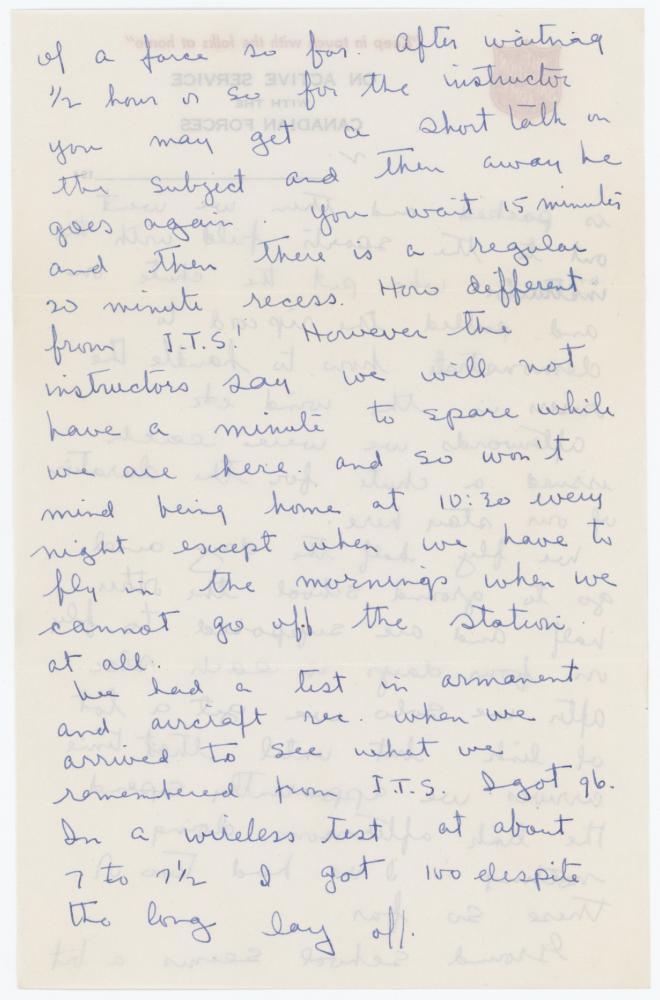 of a force so far. After waiting
1/2 hour or so for the instructor
you may get a short talk on
the subject and then away he
goes again. You wait 15 minutes
and then there is a regular
20 minute recess. How different
from I.T.S.! However the
instructors say we will not
have a minute to spare while
we are here. and so won't
mind being home at 10:30 every
night except when we have to
fly in the mornings when we
cannot go off the station
at all.
We had a test in armament
and aircraft rec. when we
arrived to see what we
remembered from I.T.S. I got 96.
In a wireless test at about
7 to 7 1/2 I got 100 despite
the long lay off.